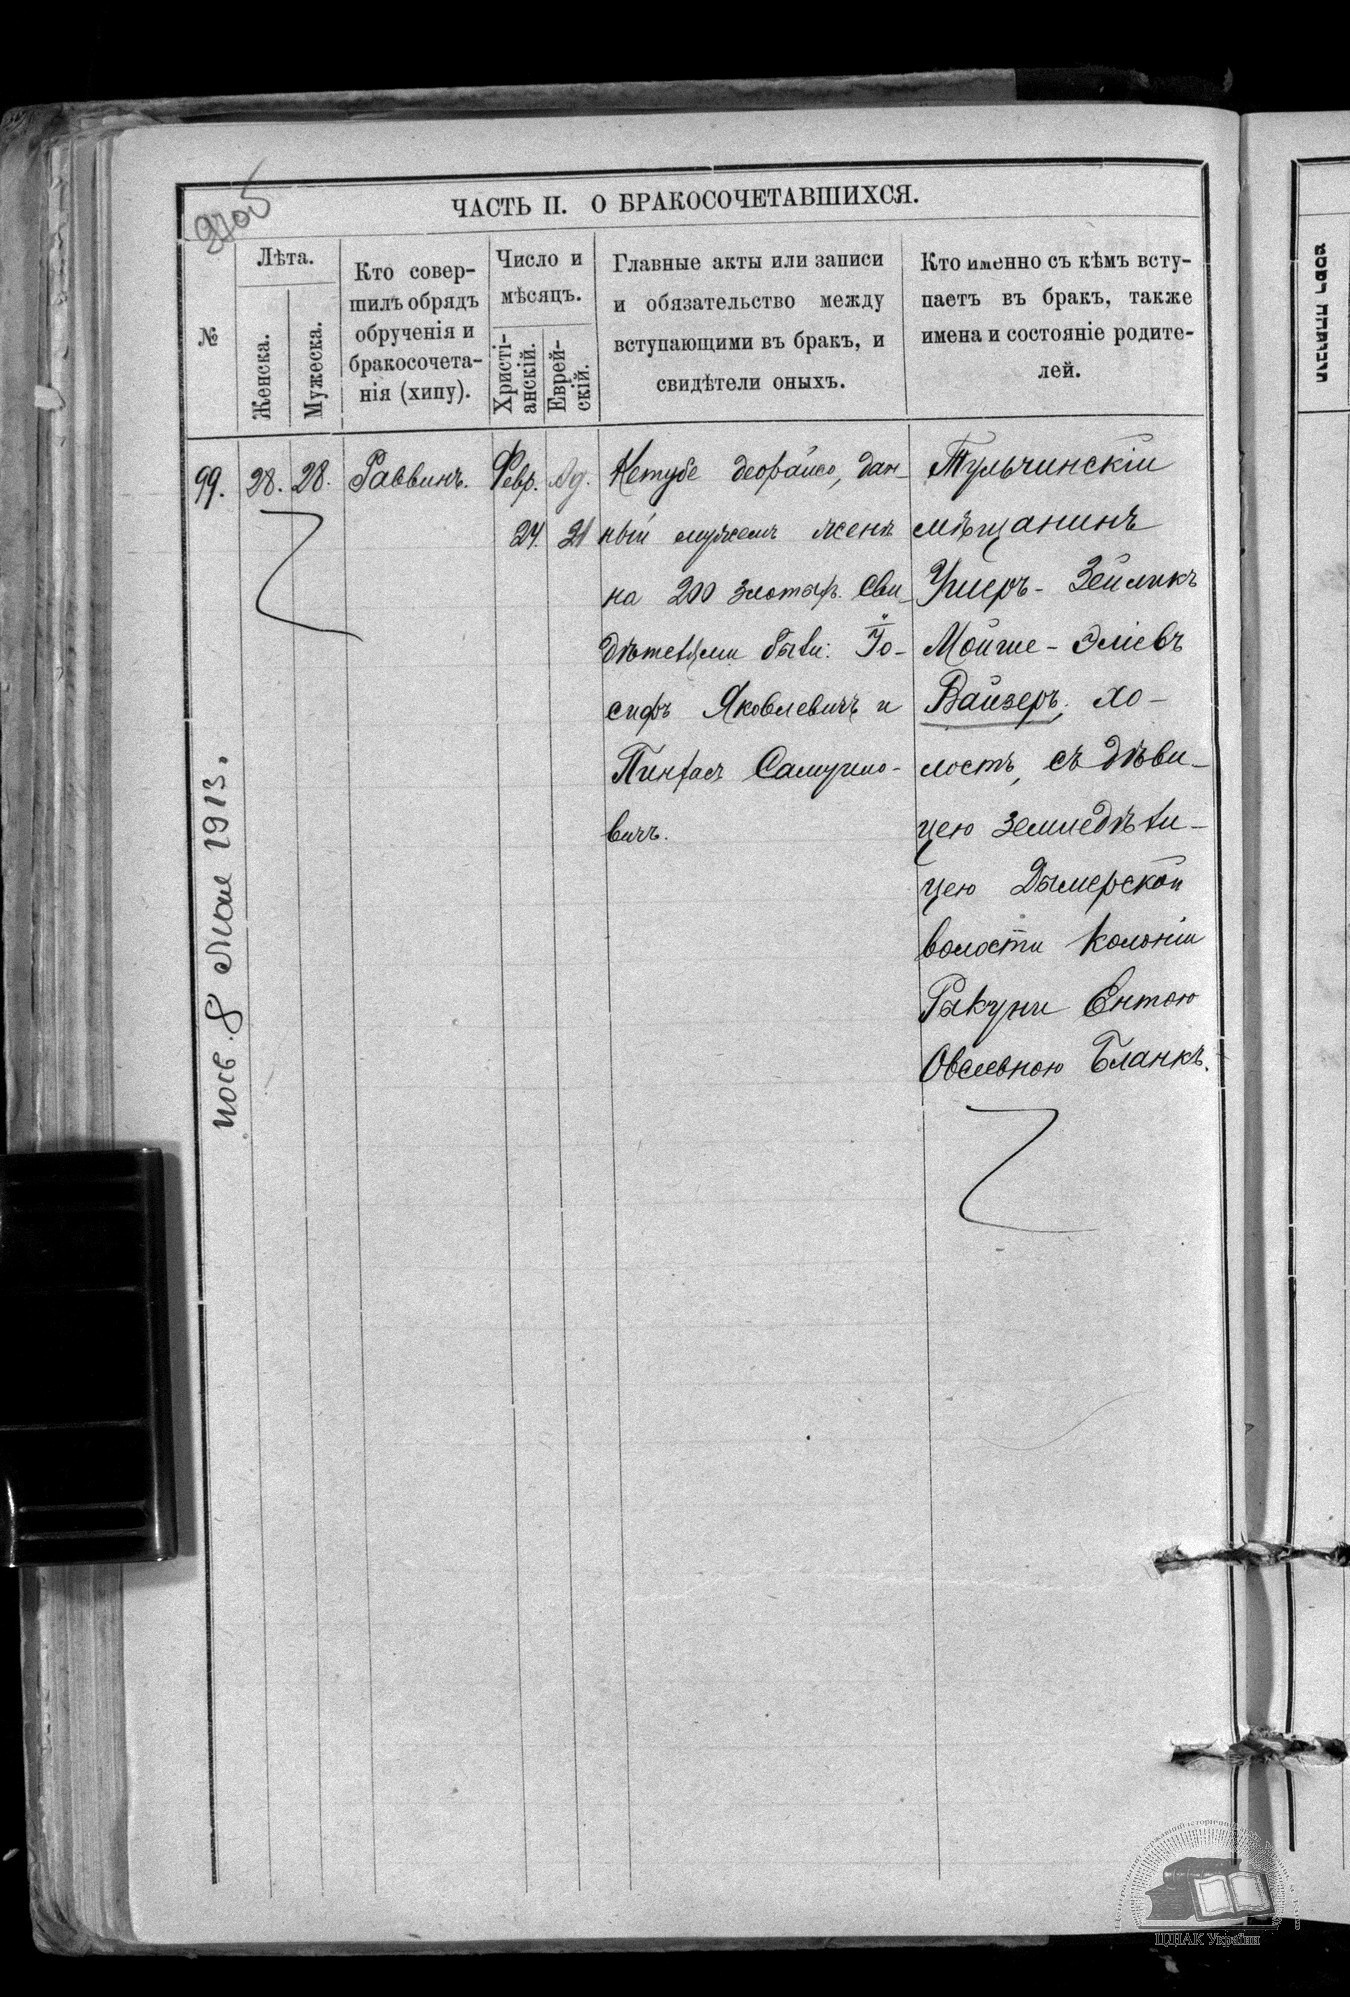 ЧАСТЬ II. О БРАКОСОЧЕТАВШИХСЯ.
№
Лѣта.
Женска.
Мужеска.
Кто совер-
шилъ обрядъ
обрученія и
бракосочета-
нія (хипу).
Число и
мѣсяцъ.
Христі-
анскій.
Еврей-
скій.
Главные акты или записи
и обязательство между
вступающими въ бракъ, и
свидѣтели оныхъ.
Кто именно съ кѣмъ всту-
паетъ въ бракъ, также
имена и состояніе родите-
лей.
99. 28. 28. Раввинъ. Февр. Ад.
24. 21
Кетубе деорайсо, дан-
ный мужемъ женѣ
на 200 злотыхъ. Сви-
дѣтелями были: Іо-
сифъ Яковлевичъ и
Пинхасъ Самуило-
вичъ.
Тульчинскій
мѣщанинъ
Ушеръ-Зейликъ
Мойше-Эліевъ
Вайзеръ, хо-
лостъ, съ дѣви-
цею земледѣли-
цею Дымерской
волости колоніи
Рыкуни Ентою
Овсеевною Бланкъ.
8 Мая 1913.
ЦДІАК України